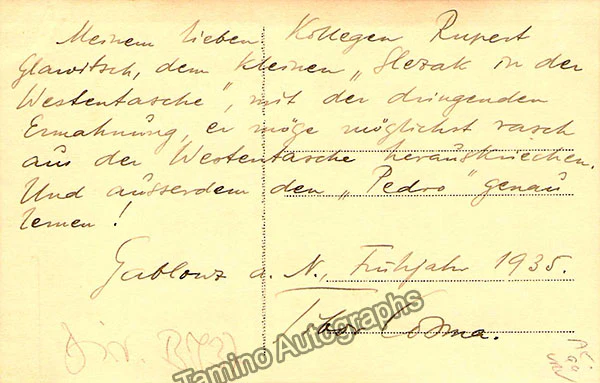 Meinem lieben Kollegen Rupert
Glawitsch, dem kleinen „Slezak in der
Westentasche", mit der dringenden
Ermahnung, er möge möglichst rasch
aus der Westentasche herauskriechen.
Und ausserdem den „Pedro" genau
lernen!
Gablonz a. N., Frühjahr 1935.
Tamino Autographs